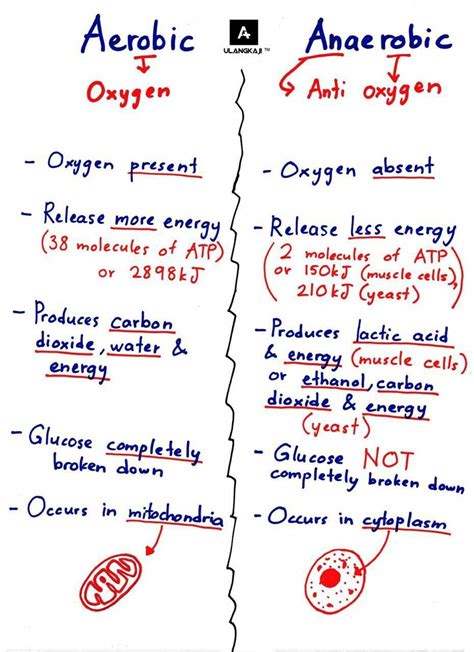 Aerobic
Oxygen
A
ULANGKAJI™
Anaerobic
Anti oxygen
- Oxygen present
- Release more energy
(38 molecules of ATP)
or 2898kJ
- Produces carbon
dioxide, water &
energy
- Glucose completely
broken down
- Occurs in mitochondria
- Oxygen absent
- Release less energy
(2 molecules of ATP
or 150kJ (muscle cells),
210kJ (yeast))
- Produces lactic acid
& energy (muscle cells)
or ethanol, carbon
dioxide & energy
(yeast)
- Glucose NOT
completely broken down
- Occurs in cytoplasm